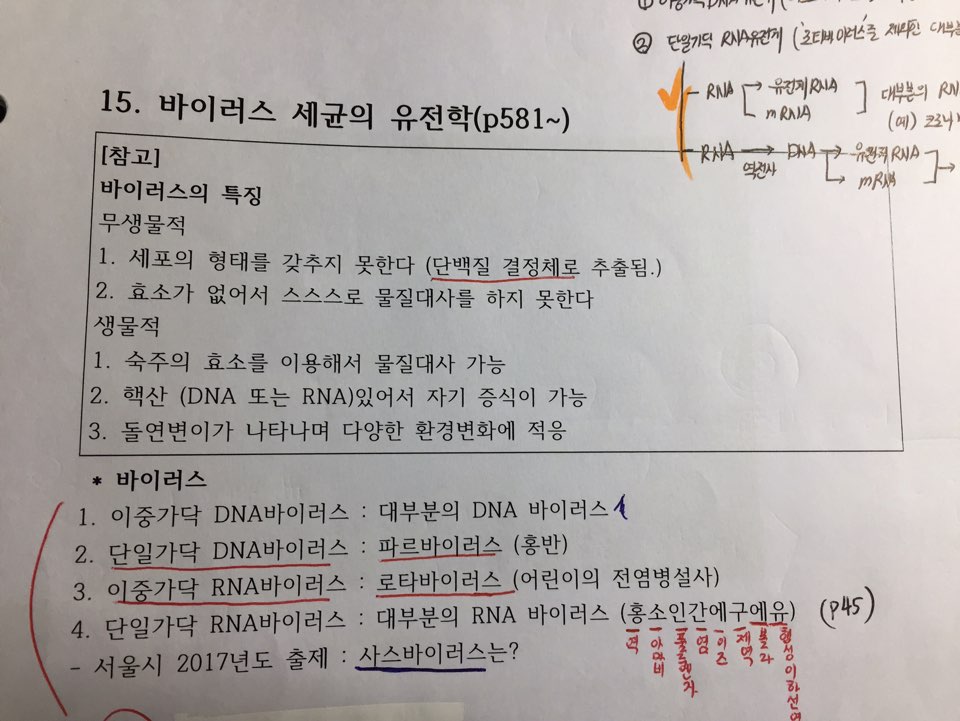 ② 단일가닥 RNA유전체 (로타바이러스를 제외한 대부분
RNA → 유전체RNA
mRNA
대부분의 RN
(예) 코로나
RNA → DNA → 유전체RNA
역전사
→ mRNA
15. 바이러스 세균의 유전학(p581~)
[참고]
바이러스의 특징
무생물적
1. 세포의 형태를 갖추지 못한다 (단백질 결정체로 추출됨.)
2. 효소가 없어서 스스스로 물질대사를 하지 못한다
생물적
1. 숙주의 효소를 이용해서 물질대사 가능
2. 핵산 (DNA 또는 RNA)있어서 자기 증식이 가능
3. 돌연변이가 나타나며 다양한 환경변화에 적응
* 바이러스
1. 이중가닥 DNA바이러스 : 대부분의 DNA 바이러스
2. 단일가닥 DNA바이러스 : 파르바이러스 (홍반)
3. 이중가닥 RNA바이러스 : 로타바이러스 (어린이의 전염병설사)
4. 단일가닥 RNA바이러스 : 대부분의 RNA 바이러스 (홍소인간에구에유) (p45)
역 아마비 플루엔자 염 이즈 제역 볼라
- 서울시 2017년도 출제 : 사스바이러스는?